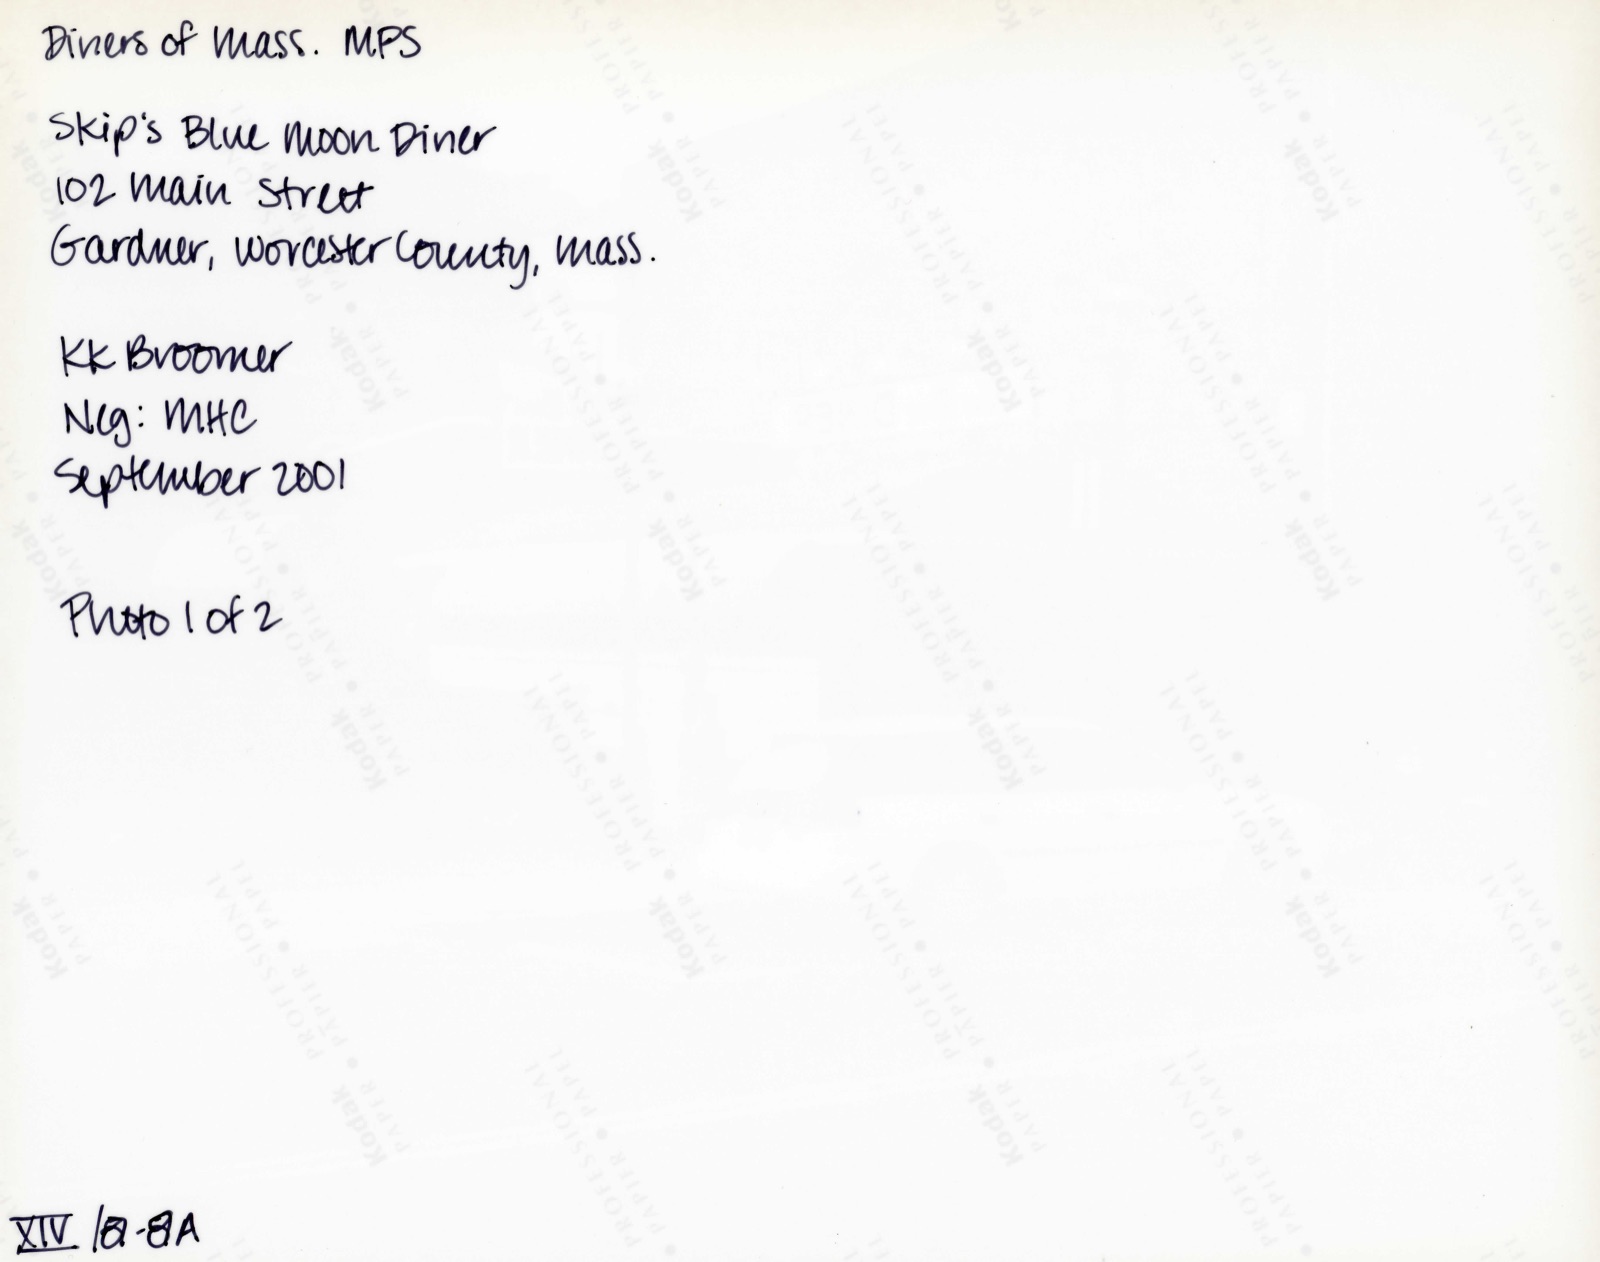 Diners of Mass. MPS
Skip's Blue Moon Diner
102 Main Street
Gardner, Worcester County, Mass.
KK Broomer
Neg: MHC
September 2001
Photo 1 of 2
XIV /8-8A
Kodak
PROFESSIONAL
PAPER • PAPIER • PAPEL